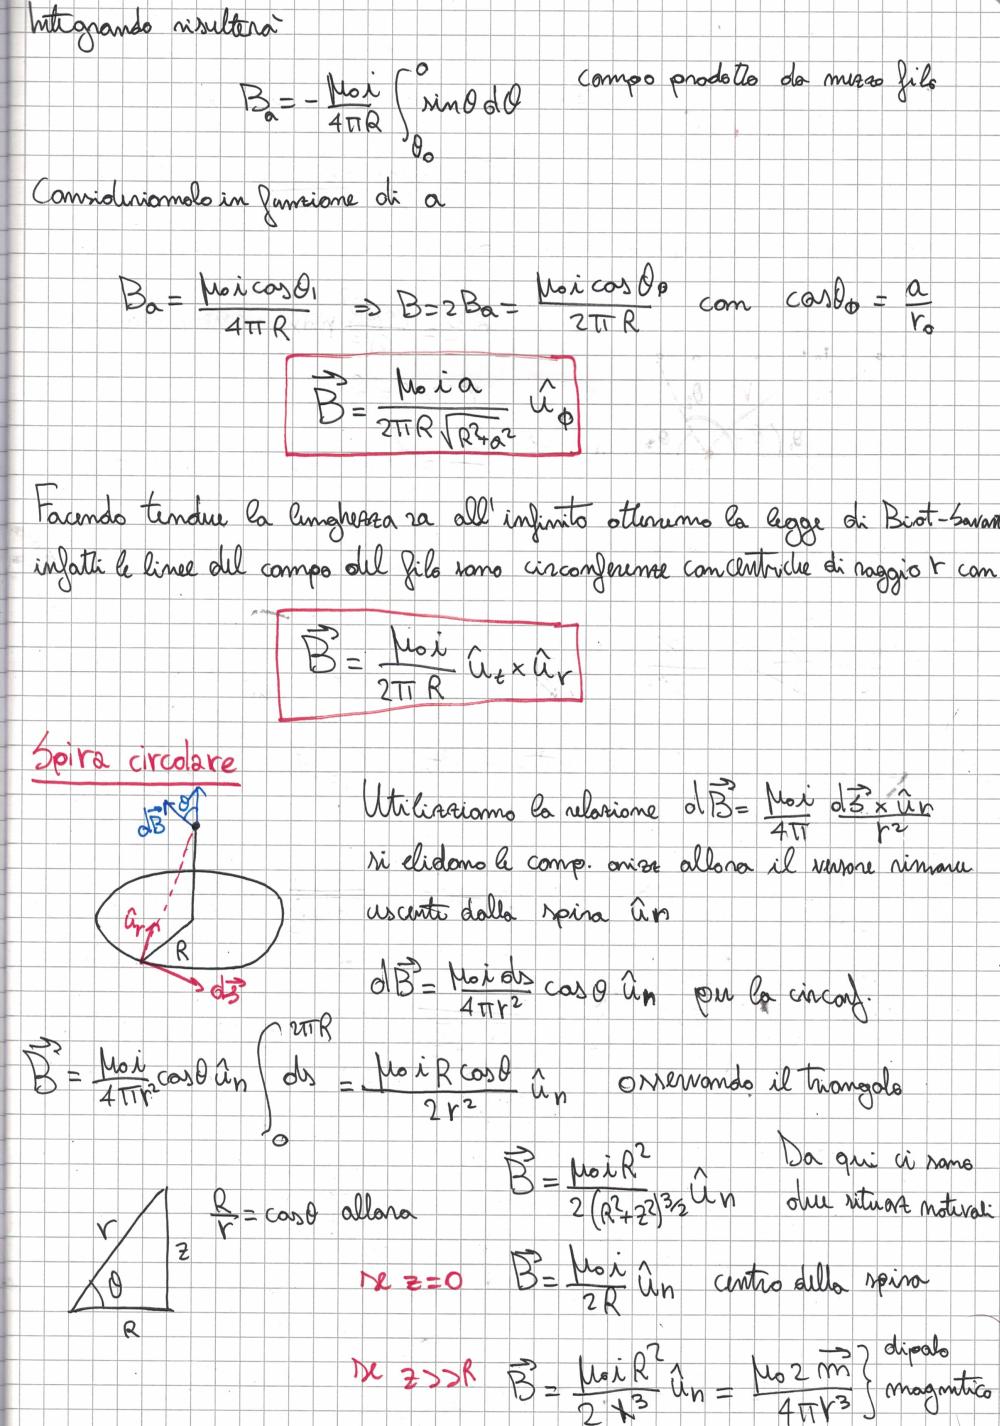 Integrando risulterà
B_a = - μ₀i/4πR ∫_{θ₀}^{0} sinθ dθ campo prodotto da mezzo filo
Consideriamolo in funzione di a
B_a = μ₀i cosθ₁/4πR ⇒ B = 2B_a = μ₀i cosθ₀/2πR con cosθ₀ = a/r₀
B⃗ = μ₀ i a/2πR√(R²+a²) û_ϕ
Facendo tendere la lunghezza 2a all'infinito otteniamo la legge di Biot-Savar
infatti le linee del campo del filo sono circonferenze concentriche di raggio r con
B⃗ = μ₀i/2πR û_t × û_r
Spira circolare
Utilizziamo la relazione dB⃗ = μ₀i/4π ds⃗ × û_r/r²
si elidono le comp. orizz allora il versore rimane
uscente dalla spira û_n
dB⃗ θ
û_r R
ds⃗
dB⃗ = μ₀i ds/4πr² cosθ û_n per la circonf.
B⃗ = μ₀i/4πr² cosθ û_n ∫_{0}^{2πR} ds = μ₀ i R cosθ/2r² û_n osservando il triangolo
B⃗ = μ₀iR²/2(R²+z²)^{3/2} û_n Da qui ci sono
due situaz notevoli
r θ z R
R/r = cosθ allora
se z=0 B⃗ = μ₀i/2R û_n centro della spira
se z>>R B⃗ = μ₀iR²/2r³ û_n = μ₀2m⃗/4πr³ } dipolo
magnetico